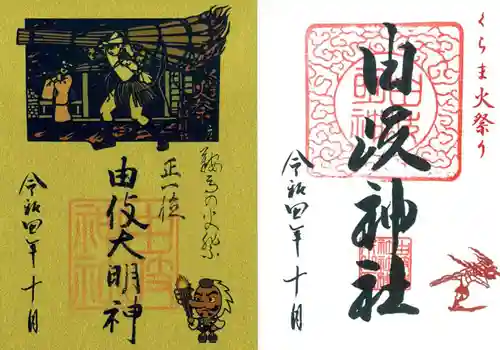 鞍馬の火祭
正一位
由岐大明神
令和四年十月
くらま火祭り
由岐神社
令和四年十月